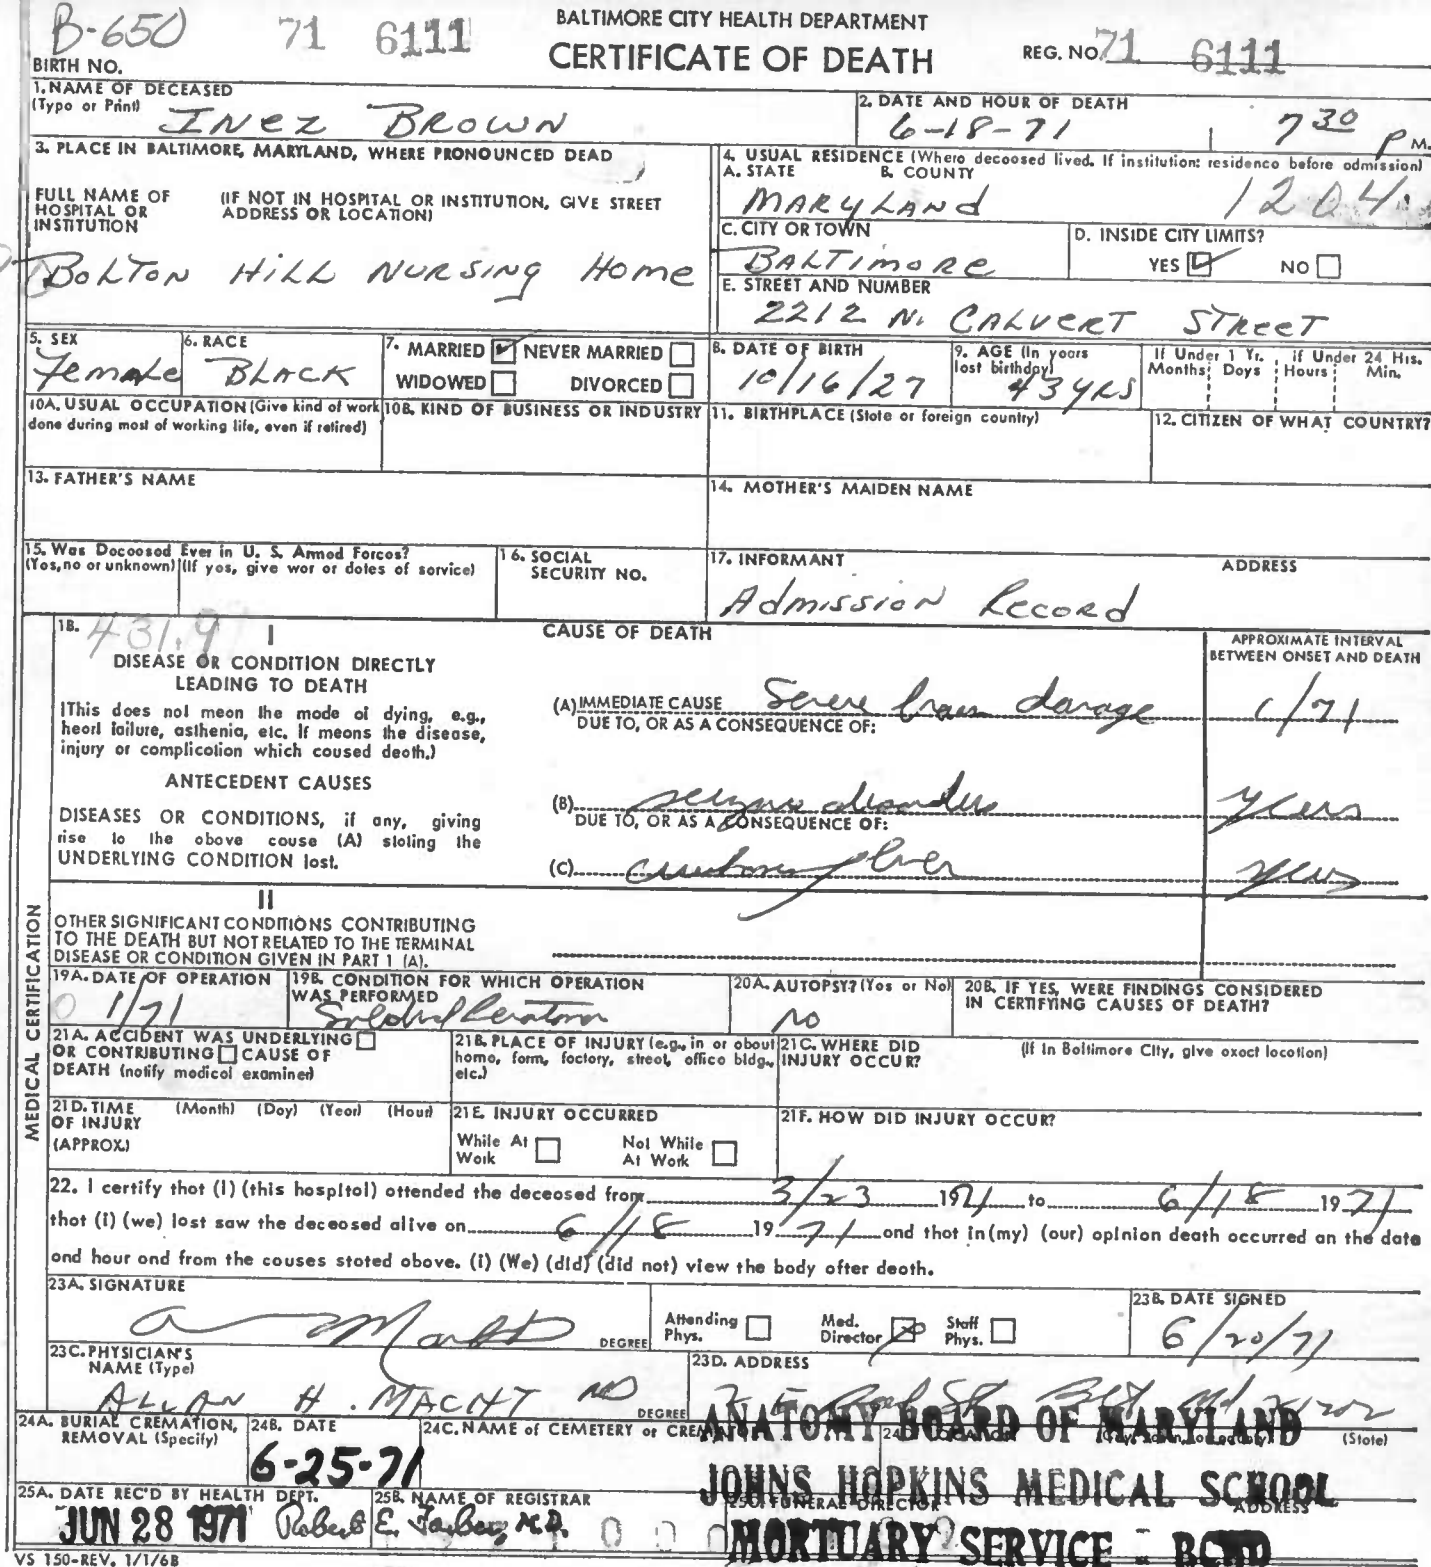 B-650 71 6111 BALTIMORE CITY HEALTH DEPARTMENT
BIRTH NO. CERTIFICATE OF DEATH REG. NO. 71 6111
1. NAME OF DECEASED
(Type or Print) INEZ BROWN
2. DATE AND HOUR OF DEATH
6-18-71 7 30 P M.
3. PLACE IN BALTIMORE, MARYLAND, WHERE PRONOUNCED DEAD
FULL NAME OF HOSPITAL OR INSTITUTION
(IF NOT IN HOSPITAL OR INSTITUTION, GIVE STREET ADDRESS OR LOCATION)
BOLTON HILL NURSING HOME
4. USUAL RESIDENCE (Where deceased lived. If institution: residence before admission)
A. STATE B. COUNTY
MARYLAND 1204
C. CITY OR TOWN
BALTIMORE
D. INSIDE CITY LIMITS?
YES NO
E. STREET AND NUMBER
2212 N. CALVERT STREET
5. SEX
Female
6. RACE
BLACK
7. MARRIED NEVER MARRIED
WIDOWED DIVORCED
8. DATE OF BIRTH
10/16/27
9. AGE (In years last birthday)
43 YRS
If Under 1 Yr. Months Days
If Under 24 Hrs. Hours Min.
10A. USUAL OCCUPATION (Give kind of work done during most of working life, even if retired)
10B. KIND OF BUSINESS OR INDUSTRY
11. BIRTHPLACE (State or foreign country)
12. CITIZEN OF WHAT COUNTRY?
13. FATHER'S NAME
14. MOTHER'S MAIDEN NAME
15. Was Deceased Ever in U. S. Armed Forces?
(Yes, no or unknown) (If yes, give war or dates of service)
16. SOCIAL SECURITY NO.
17. INFORMANT ADDRESS
Admission Record
MEDICAL CERTIFICATION
18. 431.9 I
CAUSE OF DEATH
APPROXIMATE INTERVAL BETWEEN ONSET AND DEATH
DISEASE OR CONDITION DIRECTLY LEADING TO DEATH
(This does not mean the mode of dying, e.g., heart failure, asthenia, etc. It means the disease, injury or complication which caused death.)
(A) IMMEDIATE CAUSE Severe brain damage 1/71
DUE TO, OR AS A CONSEQUENCE OF:
ANTECEDENT CAUSES
DISEASES OR CONDITIONS, if any, giving rise to the above cause (A) stating the UNDERLYING CONDITION last.
(B) seizure disorders years
DUE TO, OR AS A CONSEQUENCE OF:
(C) cirrhosis liver years
II
OTHER SIGNIFICANT CONDITIONS CONTRIBUTING TO THE DEATH BUT NOT RELATED TO THE TERMINAL DISEASE OR CONDITION GIVEN IN PART 1 (A).
19A. DATE OF OPERATION
0 1/71
19B. CONDITION FOR WHICH OPERATION WAS PERFORMED
20A. AUTOPSY? (Yes or No)
NO
20B. IF YES, WERE FINDINGS CONSIDERED IN CERTIFYING CAUSES OF DEATH?
21A. ACCIDENT WAS UNDERLYING OR CONTRIBUTING CAUSE OF DEATH (notify medical examiner)
21B. PLACE OF INJURY (e.g., in or about home, farm, factory, street, office bldg., etc.)
21C. WHERE DID INJURY OCCUR? (If in Baltimore City, give exact location)
21D. TIME OF INJURY (APPROX.) (Month) (Day) (Year) (Hour)
21E. INJURY OCCURRED
While At Work Not While At Work
21F. HOW DID INJURY OCCUR?
22. I certify that (I) (this hospital) attended the deceased from 3/23 1971 to 6/18 1971
that (I) (we) last saw the deceased alive on 6/18 1971 and that in (my) (our) opinion death occurred on the date
and hour and from the causes stated above. (I) (We) (did) (did not) view the body after death.
23A. SIGNATURE
DEGREE
Attending Phys. Med. Director Staff Phys.
23B. DATE SIGNED
6/20/71
23C. PHYSICIAN'S NAME (Type)
ALLAN H. MACHT MD DEGREE
23D. ADDRESS
24A. BURIAL CREMATION, REMOVAL (Specify)
24B. DATE
6-25-71
24C. NAME of CEMETERY or CREMATORY
(State)
ANATOMY BOARD OF MARYLAND
JOHNS HOPKINS MEDICAL SCHOOL
MORTUARY SERVICE - BCHD
25A. DATE REC'D BY HEALTH DEPT.
JUN 28 1971
25B. NAME OF REGISTRAR
Robert E. Farber, M.D.
25C. FUNERAL DIRECTOR ADDRESS
VS 150-REV. 1/1/68